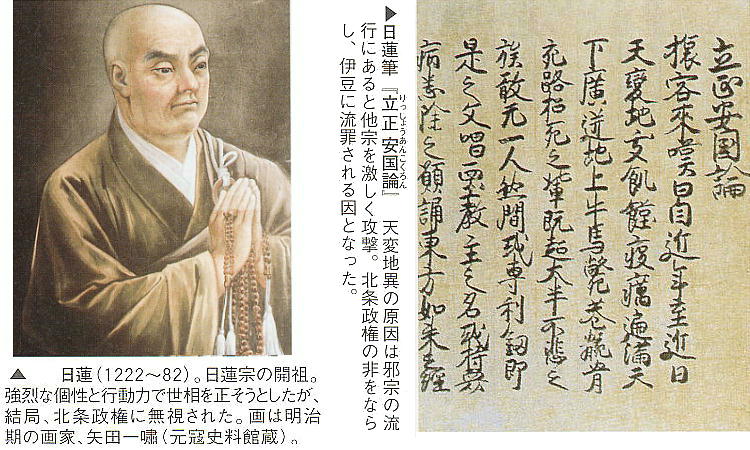 立正安国論
旅客來嘆曰自近年至近日
天變地夭飢饉疫癘遍滿天
下廣迸地上牛馬斃巷骸骨
充路招死之輩既超大半不悲之
族敢无一人然間或專利釼即
是之文唱西土教主之名或持衆
病悉除之願誦東方如来之經
▶日蓮筆『立正安国論』 天変地異の原因は邪宗の流
りっしょうあんこくろん
行にあると他宗を激しく攻撃。北条政権の非をなら
し、伊豆に流罪される因となった。
▲ 日蓮(1222～82)。日蓮宗の開祖。
強烈な個性と行動力で世相を正そうとしたが、
結局、北条政権に無視された。画は明治
期の画家、矢田一嘯(元寇史料館蔵)。